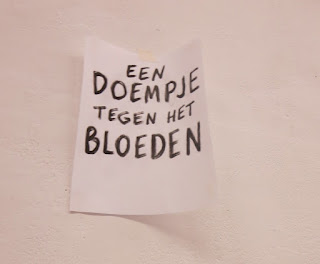 EEN
DOEMPJE
TEGEN HET
BLOEDEN